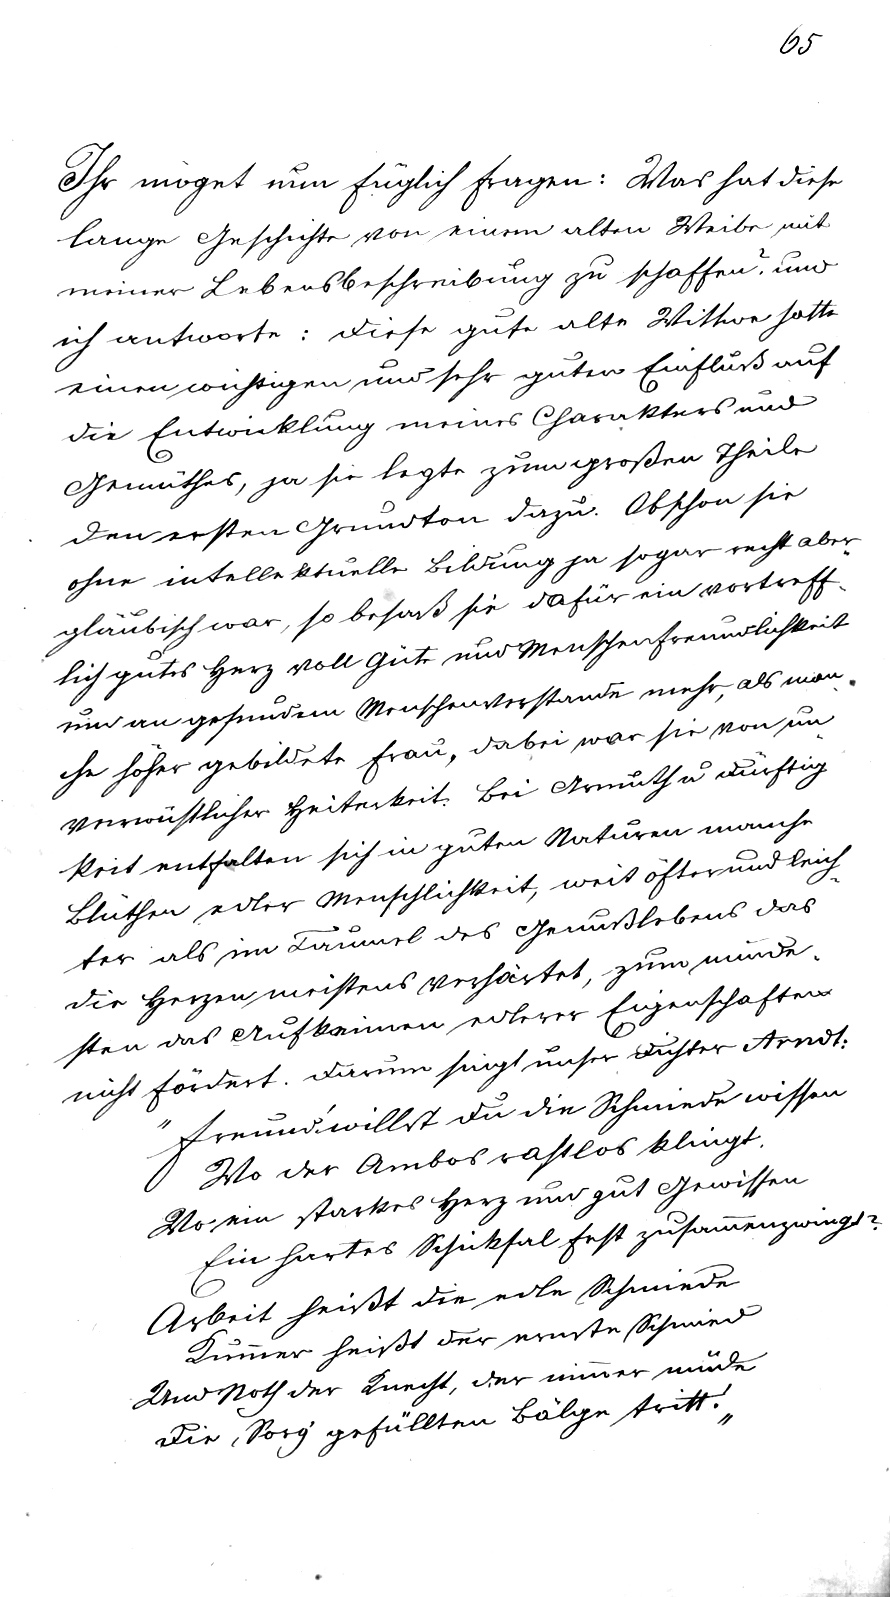 65
Ihr möget nun füglich fragen: Was hat diese
lange Geschichte von einem alten Weibe mit
meiner Lebensbeschreibung zu schaffen? und
ich antworte: diese gute alte Wittwe hatte
einen wichtigen und sehr guten Einfluß auf
die Entwicklung meines Charakters und
Gemüthes, ja sie legte zum großen Theile
den ersten Grundton dazu. Obschon sie
ohne intellektuelle Bildung ja sogar recht aber-
gläubisch war, so besaß sie dafür ein vortreff-
lich gutes Herz voll Güte und Menschenfreundlichkeit
und an gesundem Menschenverstande mehr, als man-
che höher gebildete Frau, dabei war sie von un-
verwüstlicher Heiterkeit. Bei Armuth u Dürftig
keit entfalten sich in guten Naturen manche
Blüthen edler Menschlichkeit, weit öfter und leich-
ter als im Taumel des Genußlebens das
die Herzen meistens verhärtet, zum minde-
sten das Aufkeimen edlerer Eigenschaften
nicht fördert. Darum singt unser Dichter Arndt:
"Freund! willst du die Schmiede wissen
Wo der Ambos rastlos klingt,
Wo ein starkes Herz und gut Gewissen
Ein hartes Schicksal fest zusam̅enzwingt?
Arbeit heißt die edle Schmiede
Kum̅er heißt der ernste Schmied
Und Noth der Knecht, der nim̅er müde
Die, Sorg' gefüllten Bälge tritt!"